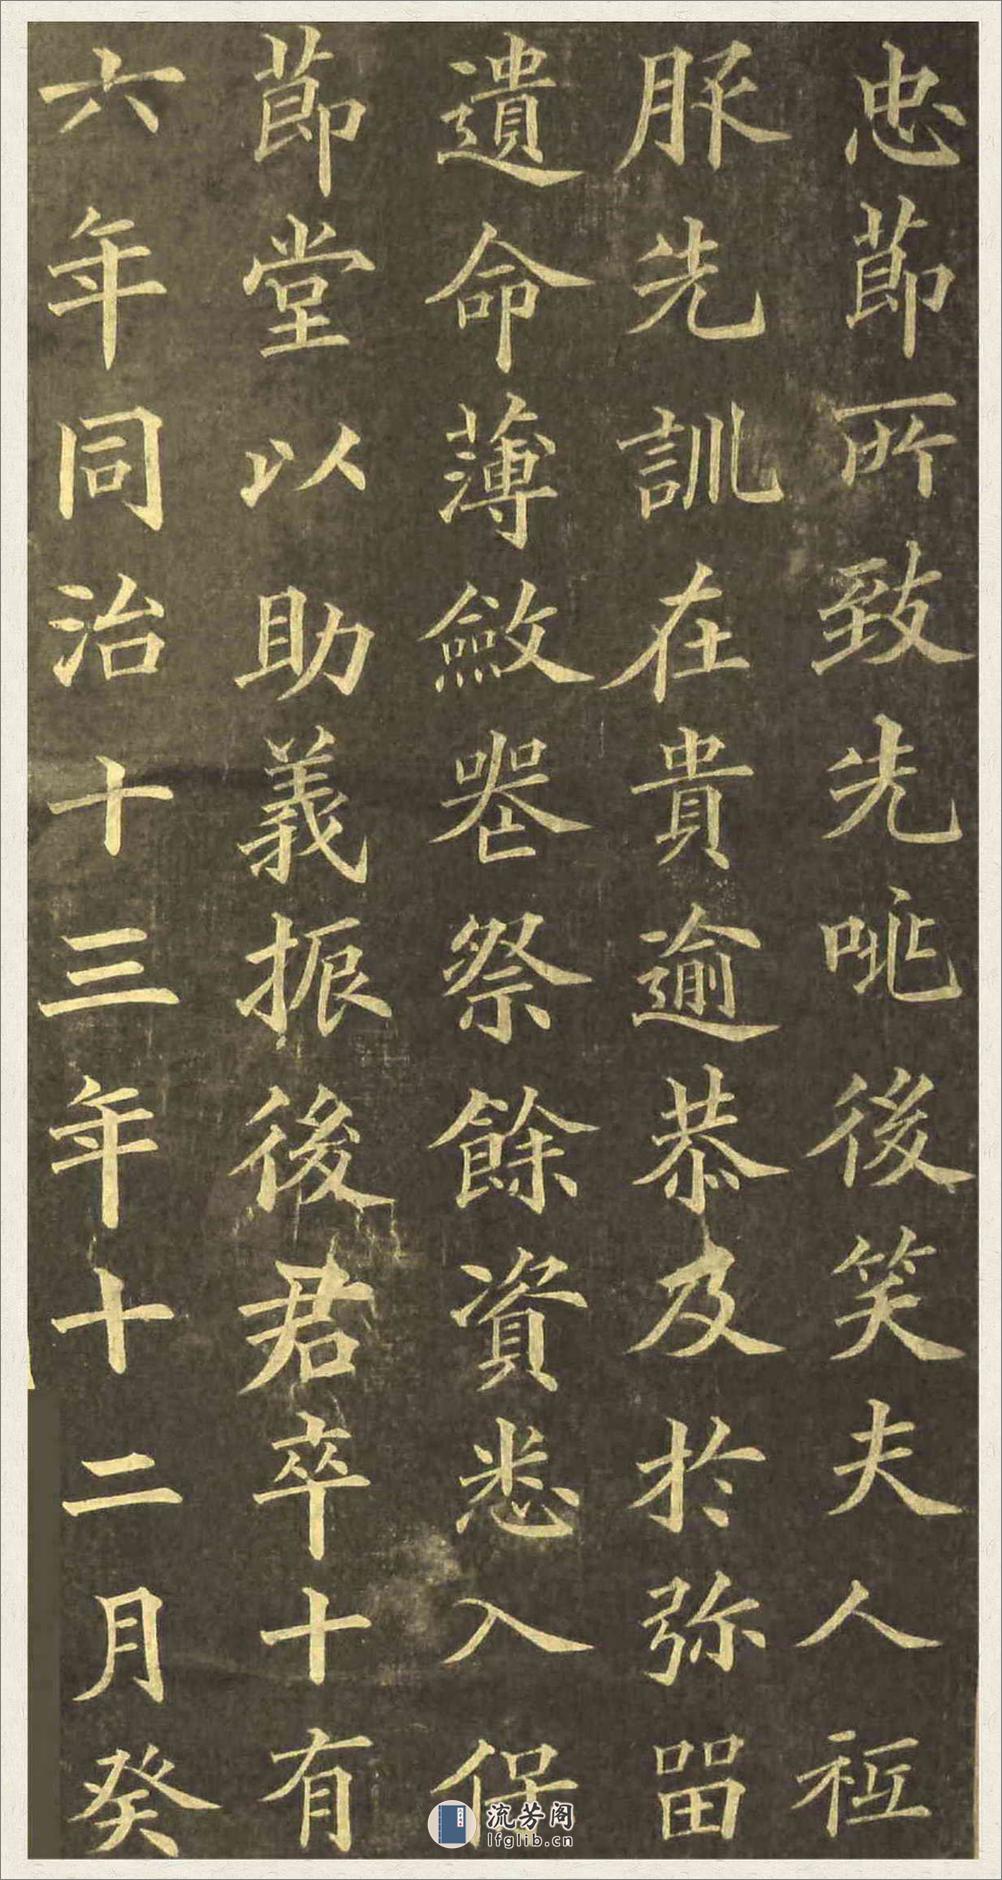 忠節所致先咷後笑夫人祗
服先訓在貴逾恭及於弥留
遺命薄斂喪祭餘資悉入保
節堂以助義振後君卒十有
六年同治十三年十二月癸
流芳阁
lfglib.cn